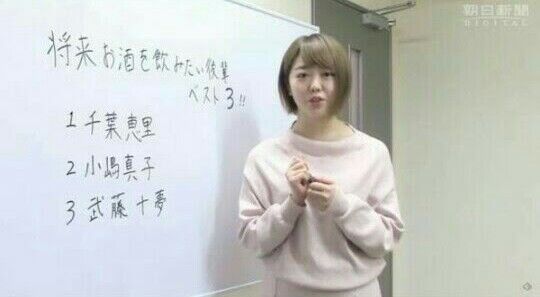 朝日新聞
DIGITAL
将来お酒を飲みたい後輩
ベスト3!!
1 千葉恵里
2 小嶋真子
3 武藤十夢